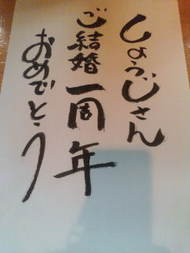 しょうじさん
ご結婚一周年
おめでとう